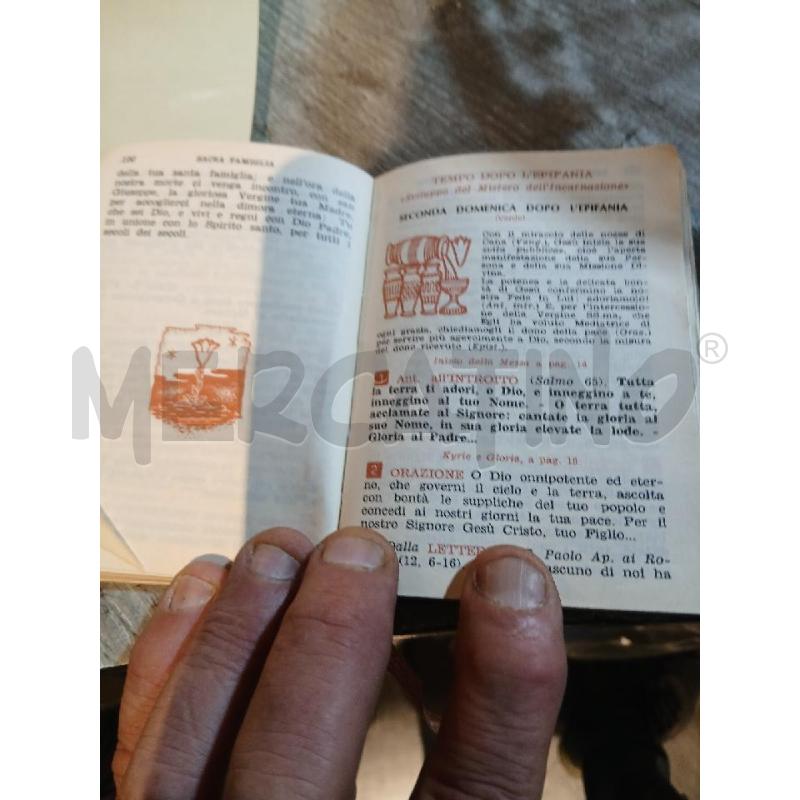 100 SACRA FAMIGLIA
della tua santa famiglia; e nell'ora della
nostra morte ci venga incontro, con san
Giuseppe, la gloriosa Vergine tua Madre,
per accoglierci nella dimora eterna: Tu
che sei Dio, e vivi e regni con Dio Padre,
in unione con lo Spirito santo, per tutti i
secoli dei secoli.
TEMPO DOPO L'EPIFANIA
«Sviluppo del Mistero dell'Incarnazione»
SECONDA DOMENICA DOPO L'EPIFANIA
(Verde)
Con il miracolo delle nozze di
Cana (Vang.), Gesù inizia la sua
vita pubblica, cioè l'aperta
manifestazione della sua Per-
sona e della sua Missione Di-
vina.
La potenza e la delicata bon-
tà di Gesù confermino la no-
stra Fede in Lui: adoriamolo!
(Ant. intr.) E, per l'intercessio-
ne della Vergine SS.ma, che
Egli ha voluto Mediatrice di
ogni grazia, chiediamogli il dono della pace (Oraz.)
per servire più agevolmente a Dio, secondo la misura
del dono ricevuto (Epist.).
Inizio della Messa a pag. 14
1 Ant. all'INTROITO (Salmo 65). Tutta
la terra ti adori, o Dio, e inneggino a te,
inneggino al tuo Nome. - O terra tutta,
acclamate al Signore: cantate la gloria al
suo Nome, in sua gloria elevate la lode. -
Gloria al Padre...
Kyrie e Gloria, a pag. 18
2 ORAZIONE O Dio onnipotente ed eter-
no, che governi il cielo e la terra, ascolta
con bontà le suppliche del tuo popolo e
concedi ai nostri giorni la tua pace. Per il
nostro Signore Gesù Cristo, tuo Figlio...
Dalla LETTER Paolo Ap. ai Ro-
(12, 6-16) ascuno di noi ha
MERCATINO®